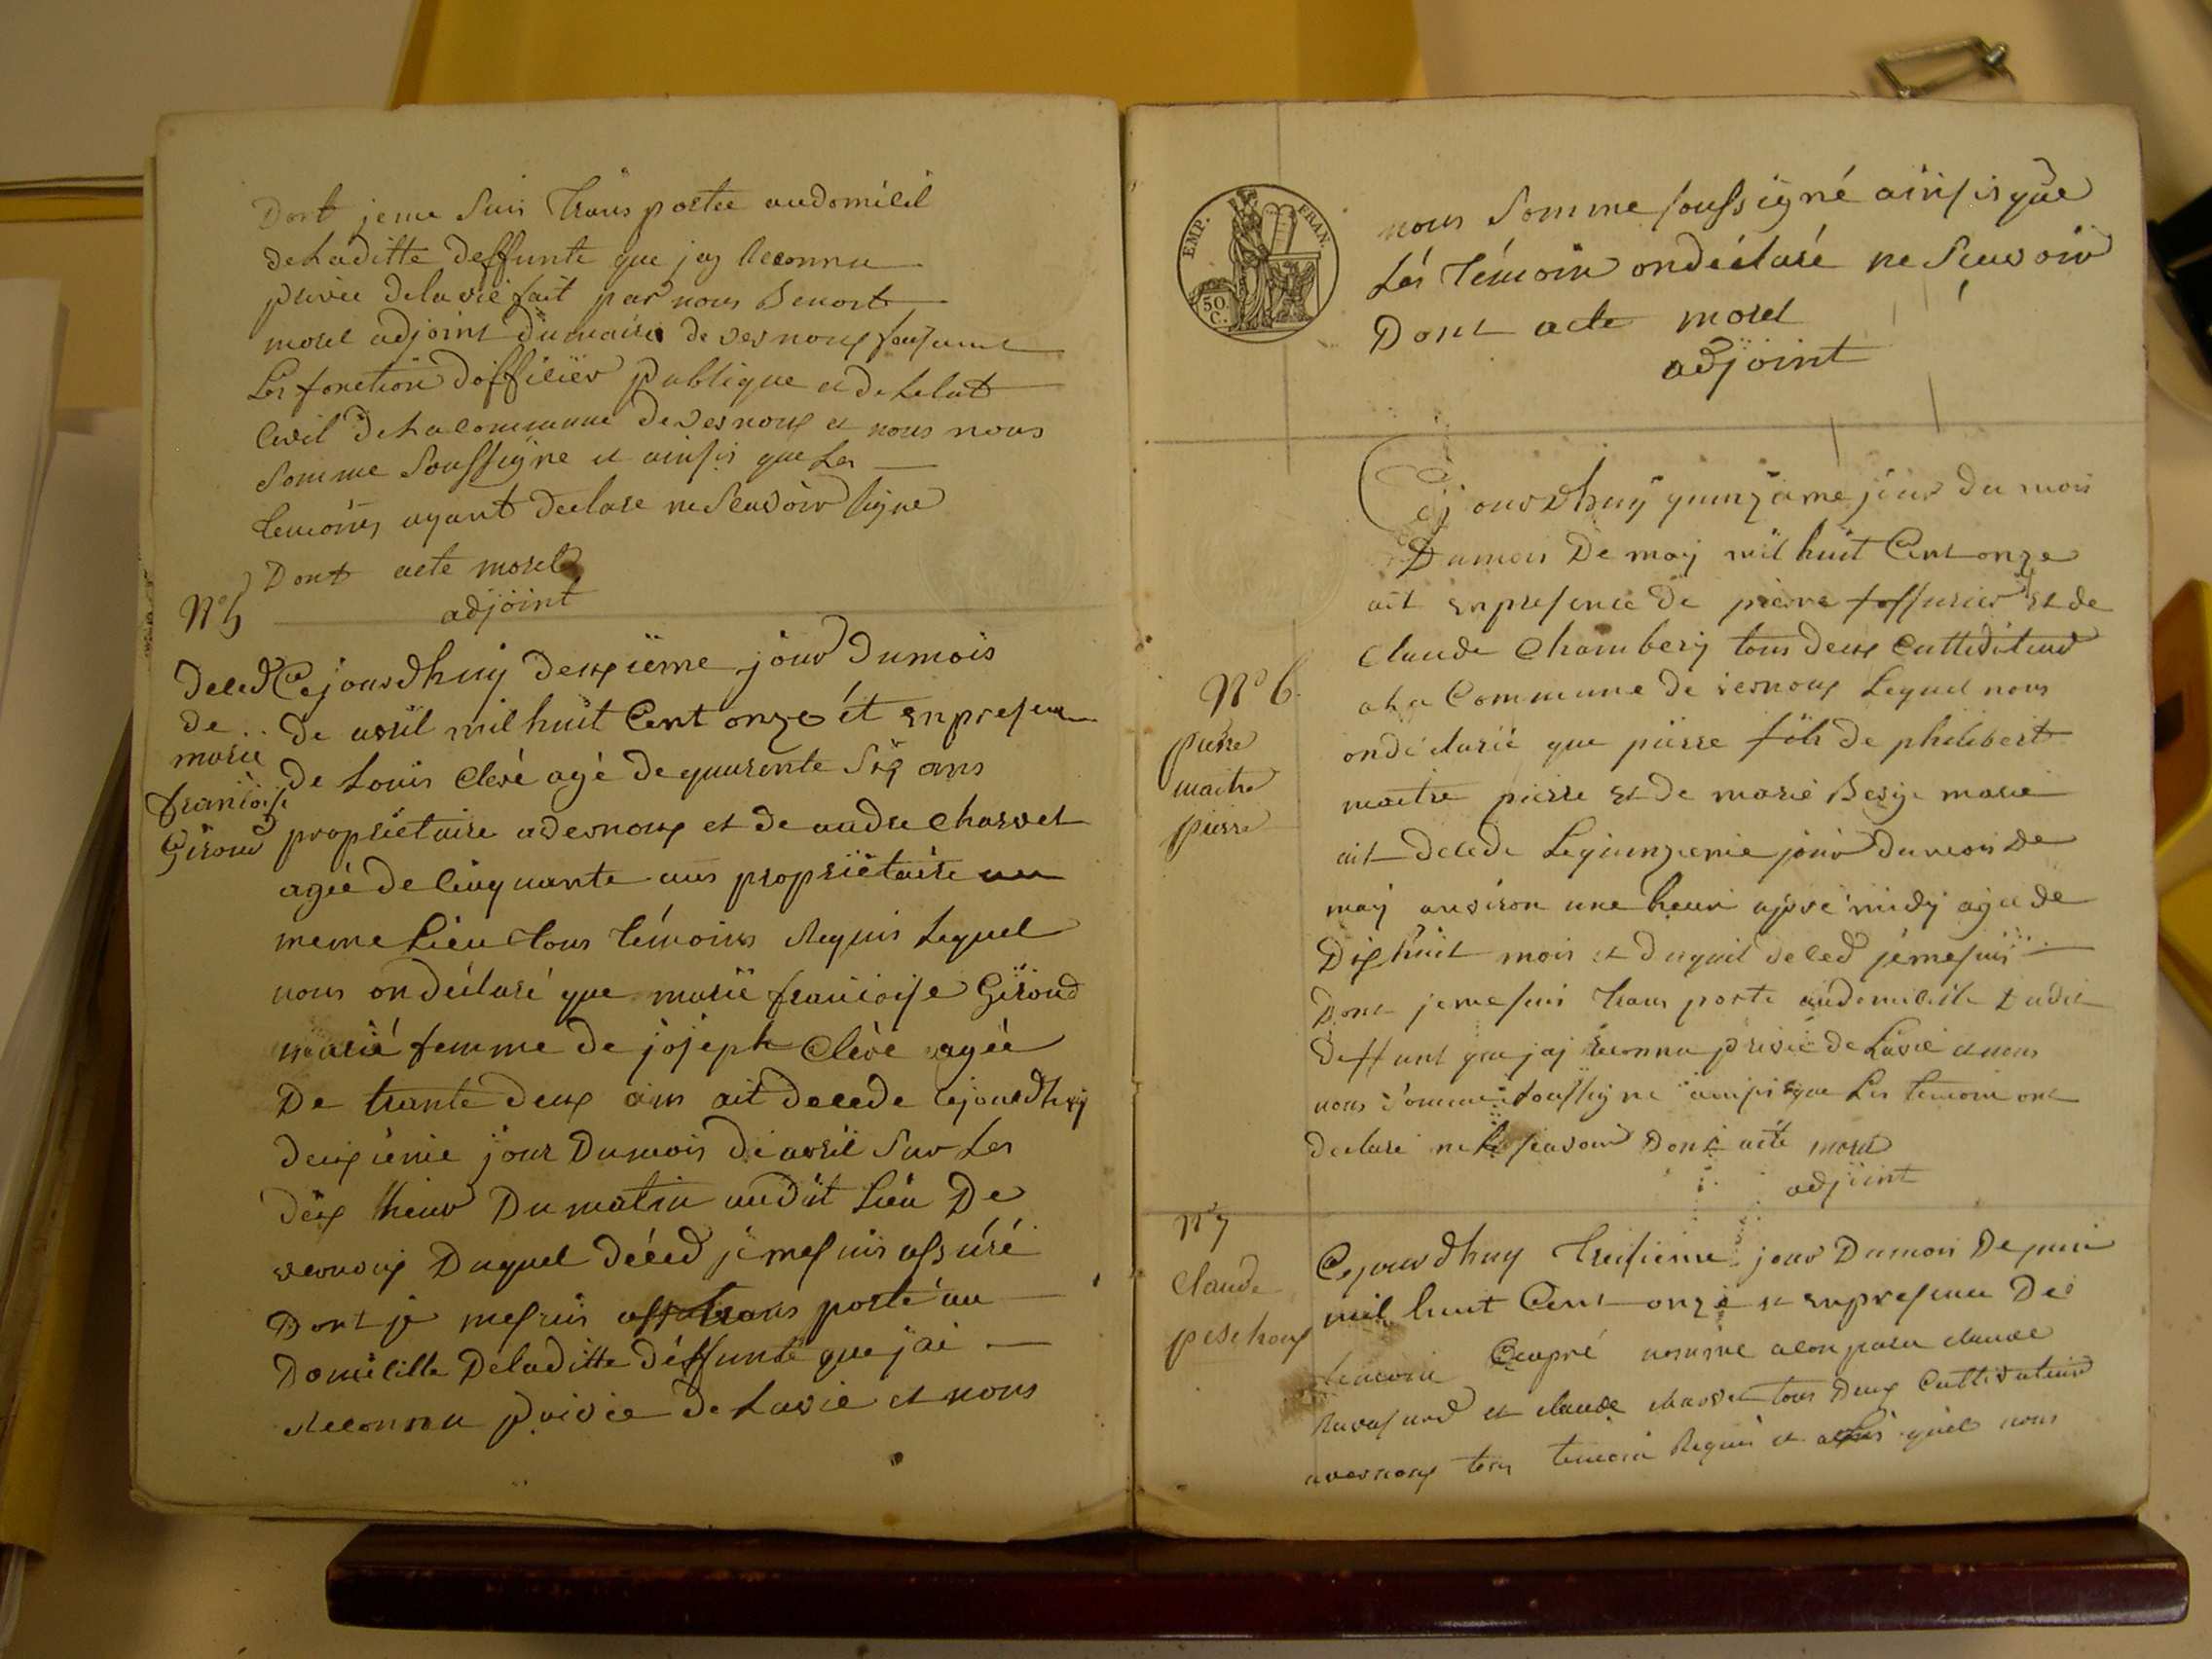 Dont jeme Suis Transportee audomicil
deLaditte deffunte que jay Reconnu
privee delavie fait par nous Benoit
morel adjoint dumaire de vernoux faisant
Les fonction dofficier publique et deLetat
Civil deLacommune de vernoux et nous nous
Somme Soussigne et ainsis que Les
temoins ayant declare ne Seavoir signe
Dont acte morel
adjoint
N° 5
deced
de
marie
francoise
Giroud
Cejourdhuy deuxieme jour dumois
de avril mil huit Cent onze et enpresence
de Louis Clere agé de quarente Six ans
propriétaire avernoux et de andre Charvet
agée de Cinquante ans propriétaire au
meme Lieu tous témoins Requis Lequel
nous ondéclaré que marie francoise Giroud
marié femme de joseph Clere agée
De trante deux ans ait decede cejourdhuy
deuxieme jour Dumois de avril Sur Les
dix heur Du matin audit Lieu De
vernoux Duquel déced je mesuis assuré
Dont je mesuis transporté au
Domicille Deladitte déffunte que jai
Reconnu privée deLavie et nous
EMP. FRAN.
50 C.
nous Somme soussigné ainsisque
Les témoin ondéclaré ne Seavoir
Dont acte morel
adjoint
Cejourdhuy quinzame jour du mois
Dumois De may mil huit Cent onze
ait enpresence de pierre et de
Claude Chambery tous deux Cultiviteur
aLa Commune de vernoux Lequel nous
ondéclarié que pierre fils de philibert
maitre pierre et de marie marie
ait decede Lequinzieme jour dumois De
may anviron une heure apré midy agee de
Dix huit mois et duquel deced jemesuis
Dont jemesuis transporte audomicille Ludit
deffunt que jaj Reconnu privié de Lavie et nous
nous Somme Soussigne ainsisque Les temoin ont
declare ne Le seavoir Dont acte morel
adjoint
N° 6.
pierre
maitre
pierre
N° 7
Claude
peschoux
Cejourdhuy treisieme jour Dumois Dejuin
mil huit Cent onze et enpresence De
temoin Ciapré nomme acomparu claude
et claude charvet tous Deux Cultivateur
avernoux tous temoin Requis et quel nous